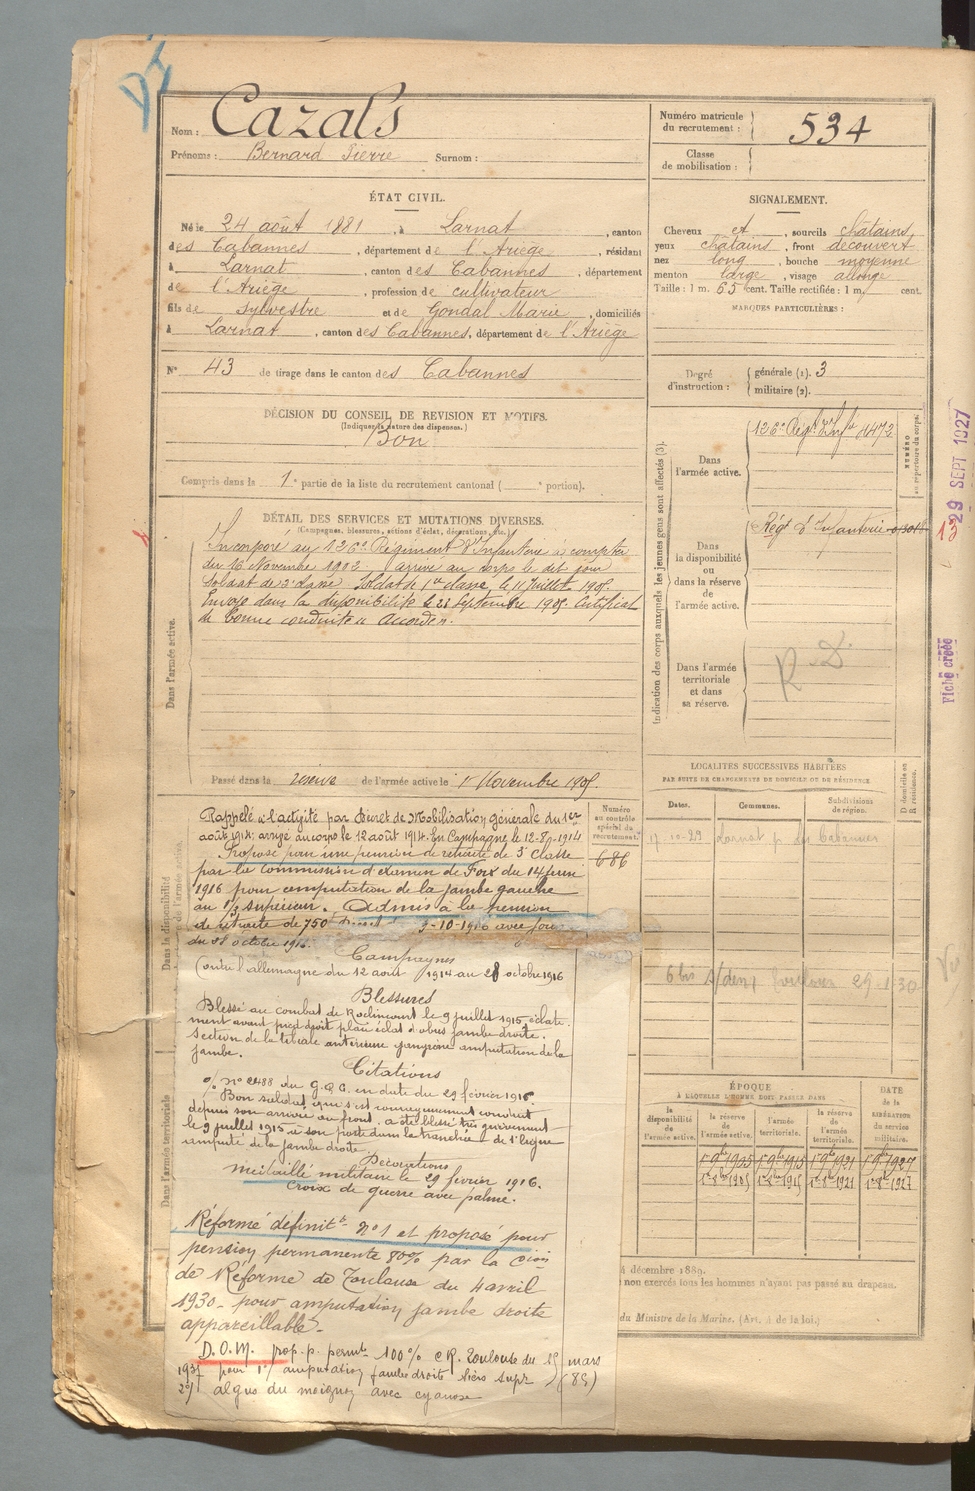 Nom : Cazals
Prénoms : Bernard Pierre Surnom :
Numéro matricule du recrutement : 534
Classe de mobilisation :
ÉTAT CIVIL.
Né le 24 août 1881, à Larnat, canton
des Cabannes, département de l'Ariège, résidant
à Larnat, canton des Cabannes, département
de l'Ariège, profession de cultivateur
fils de Sylvestre et de Gondal Marie, domiciliés
à Larnat, canton des Cabannes, département de l'Ariège
N° 43 de tirage dans le canton des Cabannes
SIGNALEMENT.
Cheveux et, sourcils châtains,
yeux châtains, front découvert
nez long, bouche moyenne
menton large, visage allongé
Taille : 1 m. 65 cent. Taille rectifiée : 1 m. cent.
MARQUES PARTICULIÈRES :
Degré d'instruction : générale (1). 3
militaire (2).
DÉCISION DU CONSEIL DE REVISION ET MOTIFS.
(Indiquer la nature des dispenses.)
Bon
Compris dans la 1e partie de la liste du recrutement cantonal ( e portion).
DÉTAIL DES SERVICES ET MUTATIONS DIVERSES.
(Campagnes, blessures, actions d'éclat, décorations, etc.)
Dans l'armée active.
Incorporé au 126e Régiment d'Infanterie à compter
du 16 Novembre 1902. arrivé au corps le dit jour
Soldat de 2e classe. Soldat de 1re classe le 11 juillet 1905.
Envoyé dans la disponibilité le 23 Septembre 1905. Certificat
de bonne conduite accordé.
Passé dans la réserve de l'armée active le 1r Novembre 1905
Indication des corps auxquels les jeunes gens sont affectés (3).
NUMÉRO au répertoire du corps.
Dans l'armée active.
126e Régt d'Infie 4472
Dans la disponibilité ou dans la réserve de l'armée active.
Régt d'Infanterie
Dans l'armée territoriale et dans sa réserve.
R D.
13
29 SEPT 1927
Fiche créée
LOCALITÉS SUCCESSIVES HABITÉES
PAR SUITE DE CHANGEMENTS DE DOMICILE OU DE RÉSIDENCE
Dates. Communes. Subdivisions de région. D domicile ou R résidence.
Larnat Les Cabannes
Toulouse 29-1-30
Numéro au contrôle spécial du recrutement.
686
Dans la disponibilité
Rappelé à l'activité par Décret de Mobilisation générale du 1er
août 1914; arrivé au corps le 12 août 1914. En Campagne le
Proposé pour une pension de retraite de 3e classe
par la commission d'examen de Foix du 14 février
1916 pour amputation de la jambe gauche
au 1/3 supérieur. Admis à la pension
de retraite de 750 9-10-1916 avec jou
du 28 octobre 1916.
Campagnes
Contre l'allemagne du 12 août 1914 au 28 octobre 1916
Blessures
Blessé au combat de Roclincourt le 9 juillet 1915 éclate
ment avant pied droit plaie éclat d'obus jambe droite.
Section de la tibiale antérieure gangrène amputation de la
jambe.
Citations
% n° 2488 du G.Q.G. en date du 29 février 1916
Bon soldat qui s'est courageusement conduit
depuis son arrivée au front. a été blessé très grièvement
le 9 juillet 1915 à son poste dans la tranchée de 1e ligne
amputé de la jambe droite.
Décorations
médaillé militaire le 29 février 1916.
Croix de guerre avec palme.
Réformé définit n°1 et proposé pour
pension permanente 80% par la Con
de Réforme de Toulouse du 4 avril
1930 - pour amputation jambe droite
appareillable -
D.O.M. prop. p. permte 100% C R. Toulouse du 15 mars
1937 pour 1°/ amputation jambe droite tiers supr (85)
2°/ algus du moignon avec cyanose
Dans l'armée territoriale
ÉPOQUE
À LAQUELLE L'HOMME DOIT PASSER DANS
la disponibilité de l'armée active. la réserve de l'armée active. l'armée territoriale. la réserve de l'armée territoriale.
DATE de la LIBÉRATION du service militaire.
1r 9bre 1905 1r 9bre 1915 1r 9bre 1921 1r 9bre 1927
4 décembre 1889.
non exercés tous les hommes n'ayant pas passé au drapeau.
du Ministre de la Marine. (Art. 4 de la loi.)